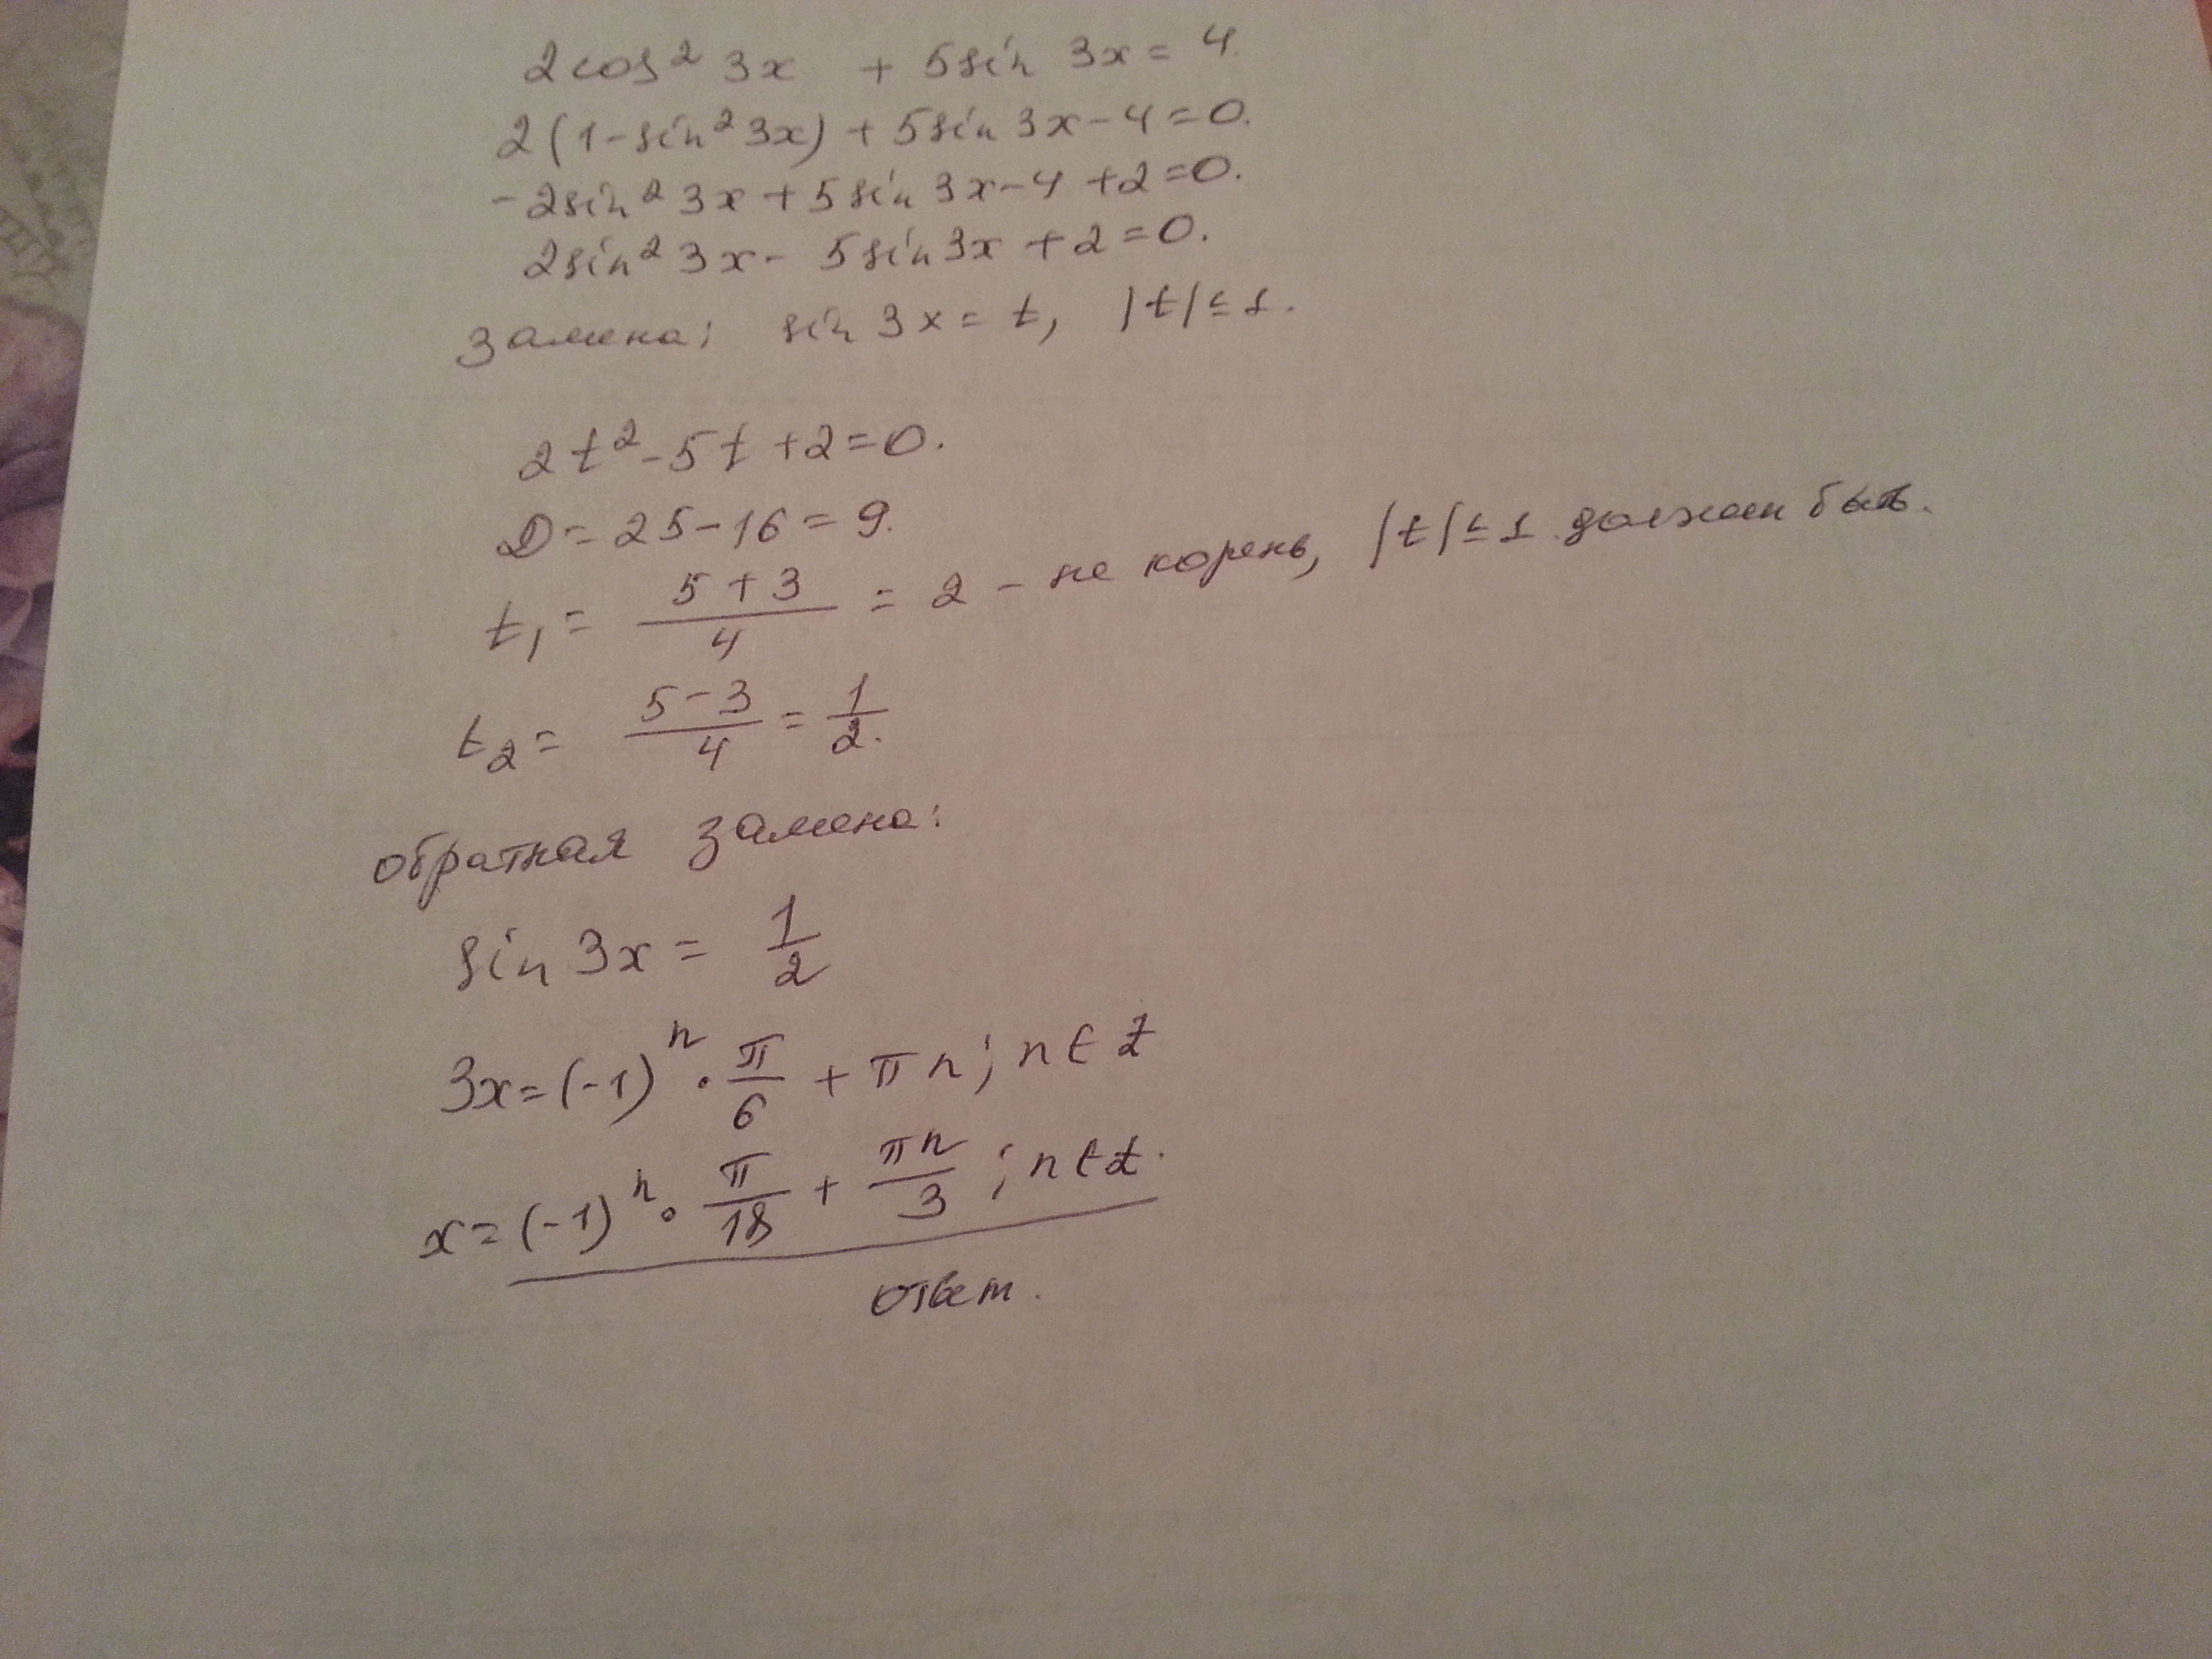 2cos² 3x + 5sin 3x = 4.
2(1-sin² 3x) + 5sin 3x - 4 = 0.
-2sin² 3x + 5sin 3x - 4 + 2 = 0.
2sin² 3x - 5sin 3x + 2 = 0.
Замена: sin 3x = t, |t| ≤ 1.
2t² - 5t + 2 = 0.
D = 25 - 16 = 9.
t₁ = (5 + 3)/4 = 2 - не корень, |t| ≤ 1 должен быть.
t₂ = (5 - 3)/4 = 1/2.
обратная замена:
sin 3x = 1/2
3x = (-1)ⁿ · π/6 + πn; n ∈ Z
x = (-1)ⁿ · π/18 + πn/3; n ∈ Z.
ответ.